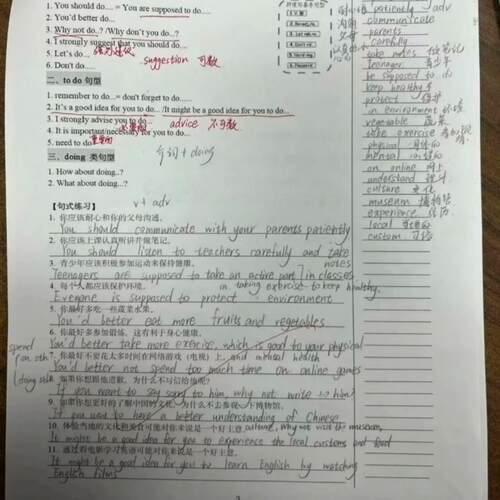 1. You should do.... = You are supposed to do....
2. You'd better do....
3. Why not do..? /Why don't you do..?
4. I strongly suggest that you should do....
5. Let's do..
suggestion 可数
6. Don't do....
二、to do 句型
1. remember to do...= don't forget to do......
2. It's a good idea for you to do... /It might be a good idea for you to do....
3. I strongly advise you to do...
advice 不可数
4. It is important/necessary for you to do...
5. need to do
介词 + doing
三、doing 类句型
1. How about doing...?
2. What about doing...?
v + adv
【句式练习】
1. 你应该耐心和你的父母沟通。
You should communicate with your parents patiently
2. 你应该上课认真听讲并做笔记。
You should listen to teachers carefully and take notes
3. 青少年应该积极参加运动来保持健康。
in classes
Teenagers are supposed to take an active part
in taking exercise to keep healthy.
4. 每个人都应该保护环境。
Everyone is supposed to protect environment
5. 你最好多吃一些蔬菜水果。
You'd better eat more fruits and vegetables
6. 你最好多参加锻炼，这有利于身心健康。
You'd better take more exercise, which is good to your physical
and mental health
7. 你最好不要花太多时间在网络游戏（电视）上。
You'd better not spend too much time on online games
8. 如果你想跟他道歉，为什么不写信给他呢？
If you want to say sorry to him, why not write to him?
9. 如果你想更好的了解中国的文化，为什么不去参观一下博物馆。
If you want to have a better understanding of Chinese
culture, why not visit the museum,
10. 体验当地的文化和美食可能对你来说是一个好主意。
It might be a good idea for you to experience the local customs and food
11. 通过看电影学习英语可能对你来说是一个好主意。
It might be a good idea for you to learn English by watching
English films
patiently adv
communicate
parents
carefully
take notes 做笔记
teenager 青少年
be supposed to do
keep healthy
protect 保护
environment 环境
vegetable 蔬菜
take exercise
physical 身体的
mental 心理的
on online 网上
understand 理解
culture 文化
museum 博物馆
experience 经历
local 当地的
custom 习俗